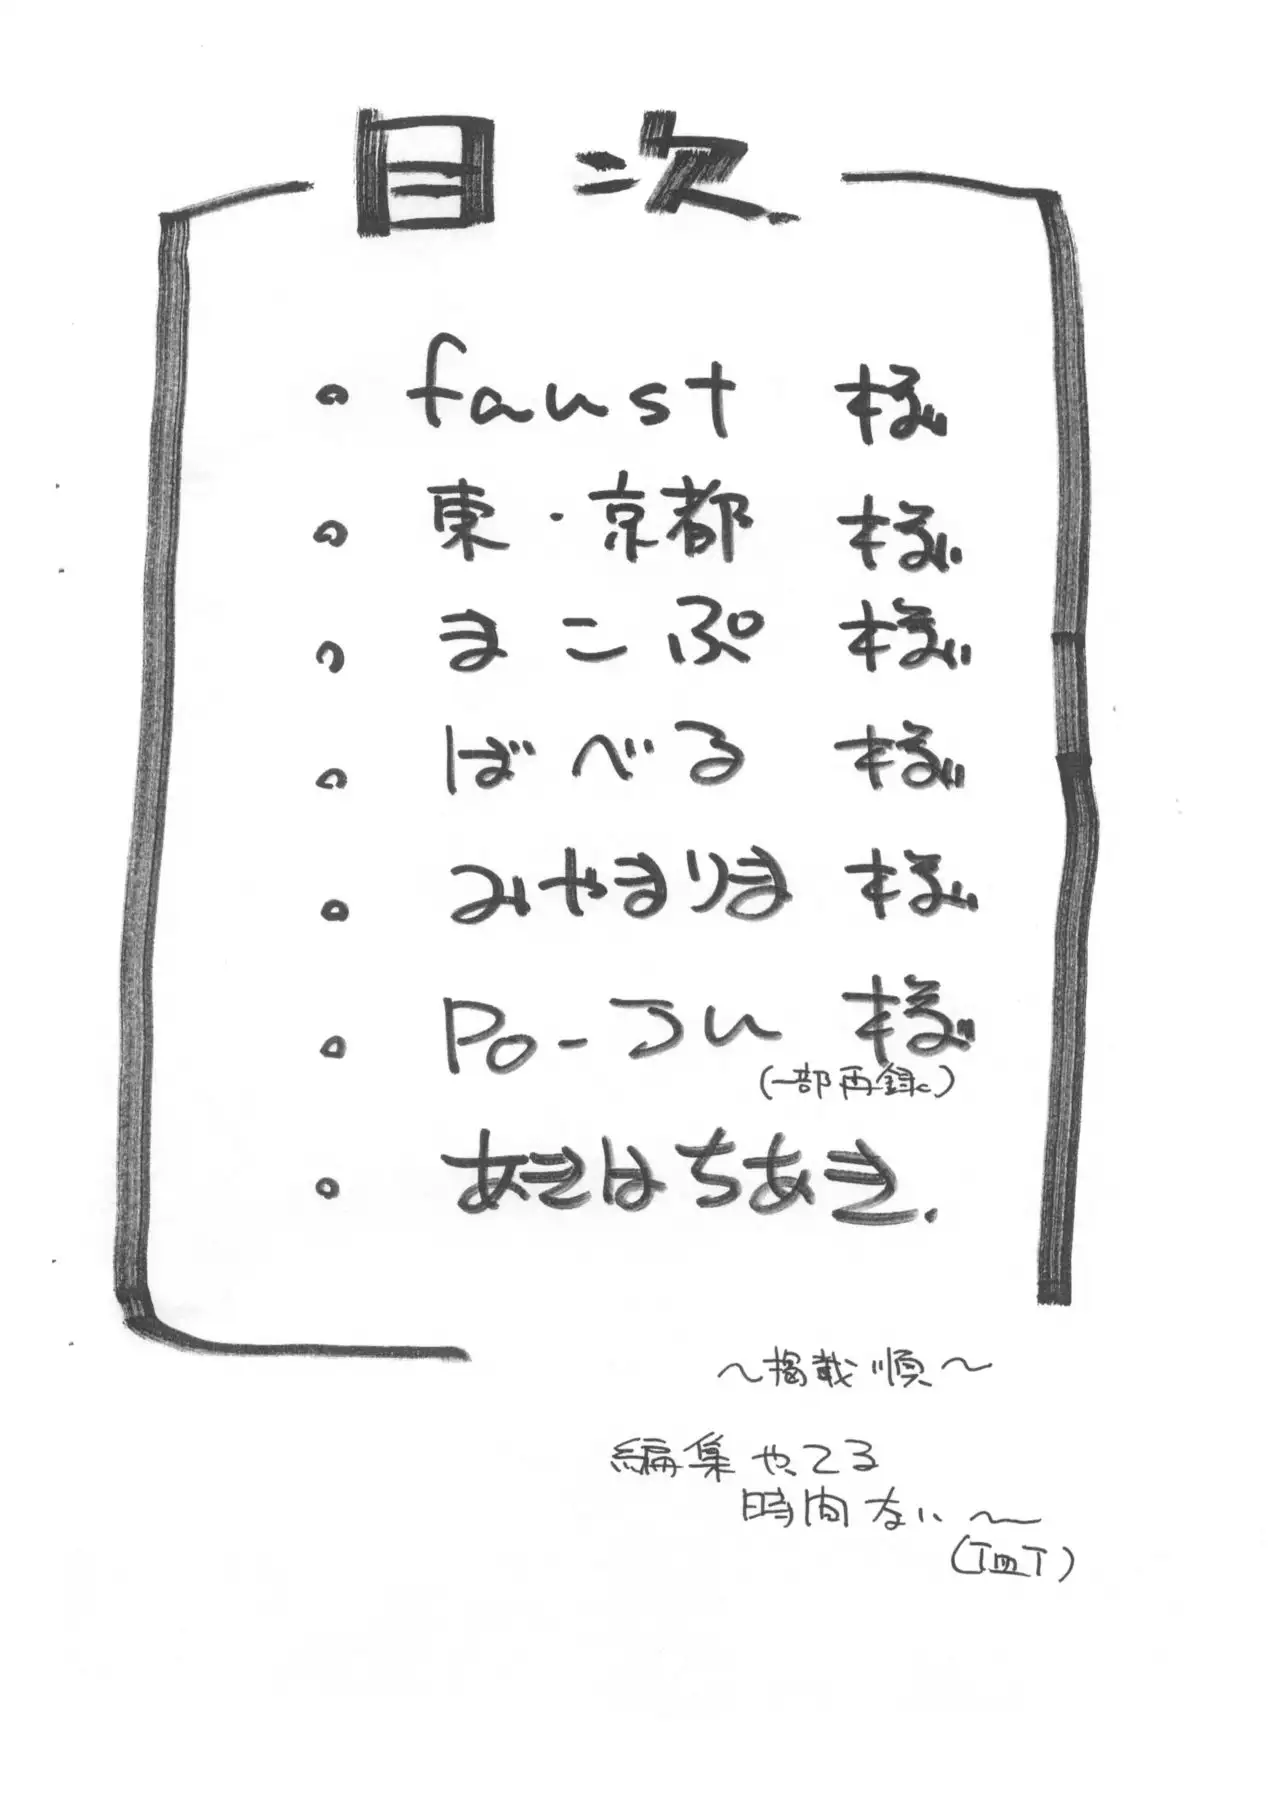 目次
。faust 様
。東・京都 様
。まこぷ 様
。ばべる 様
。みやまりま 様
。Po-つい 様
(一部再録。)
。あきはちあき.
～掲載順～
編集やってる
時間ない～
(T皿T)